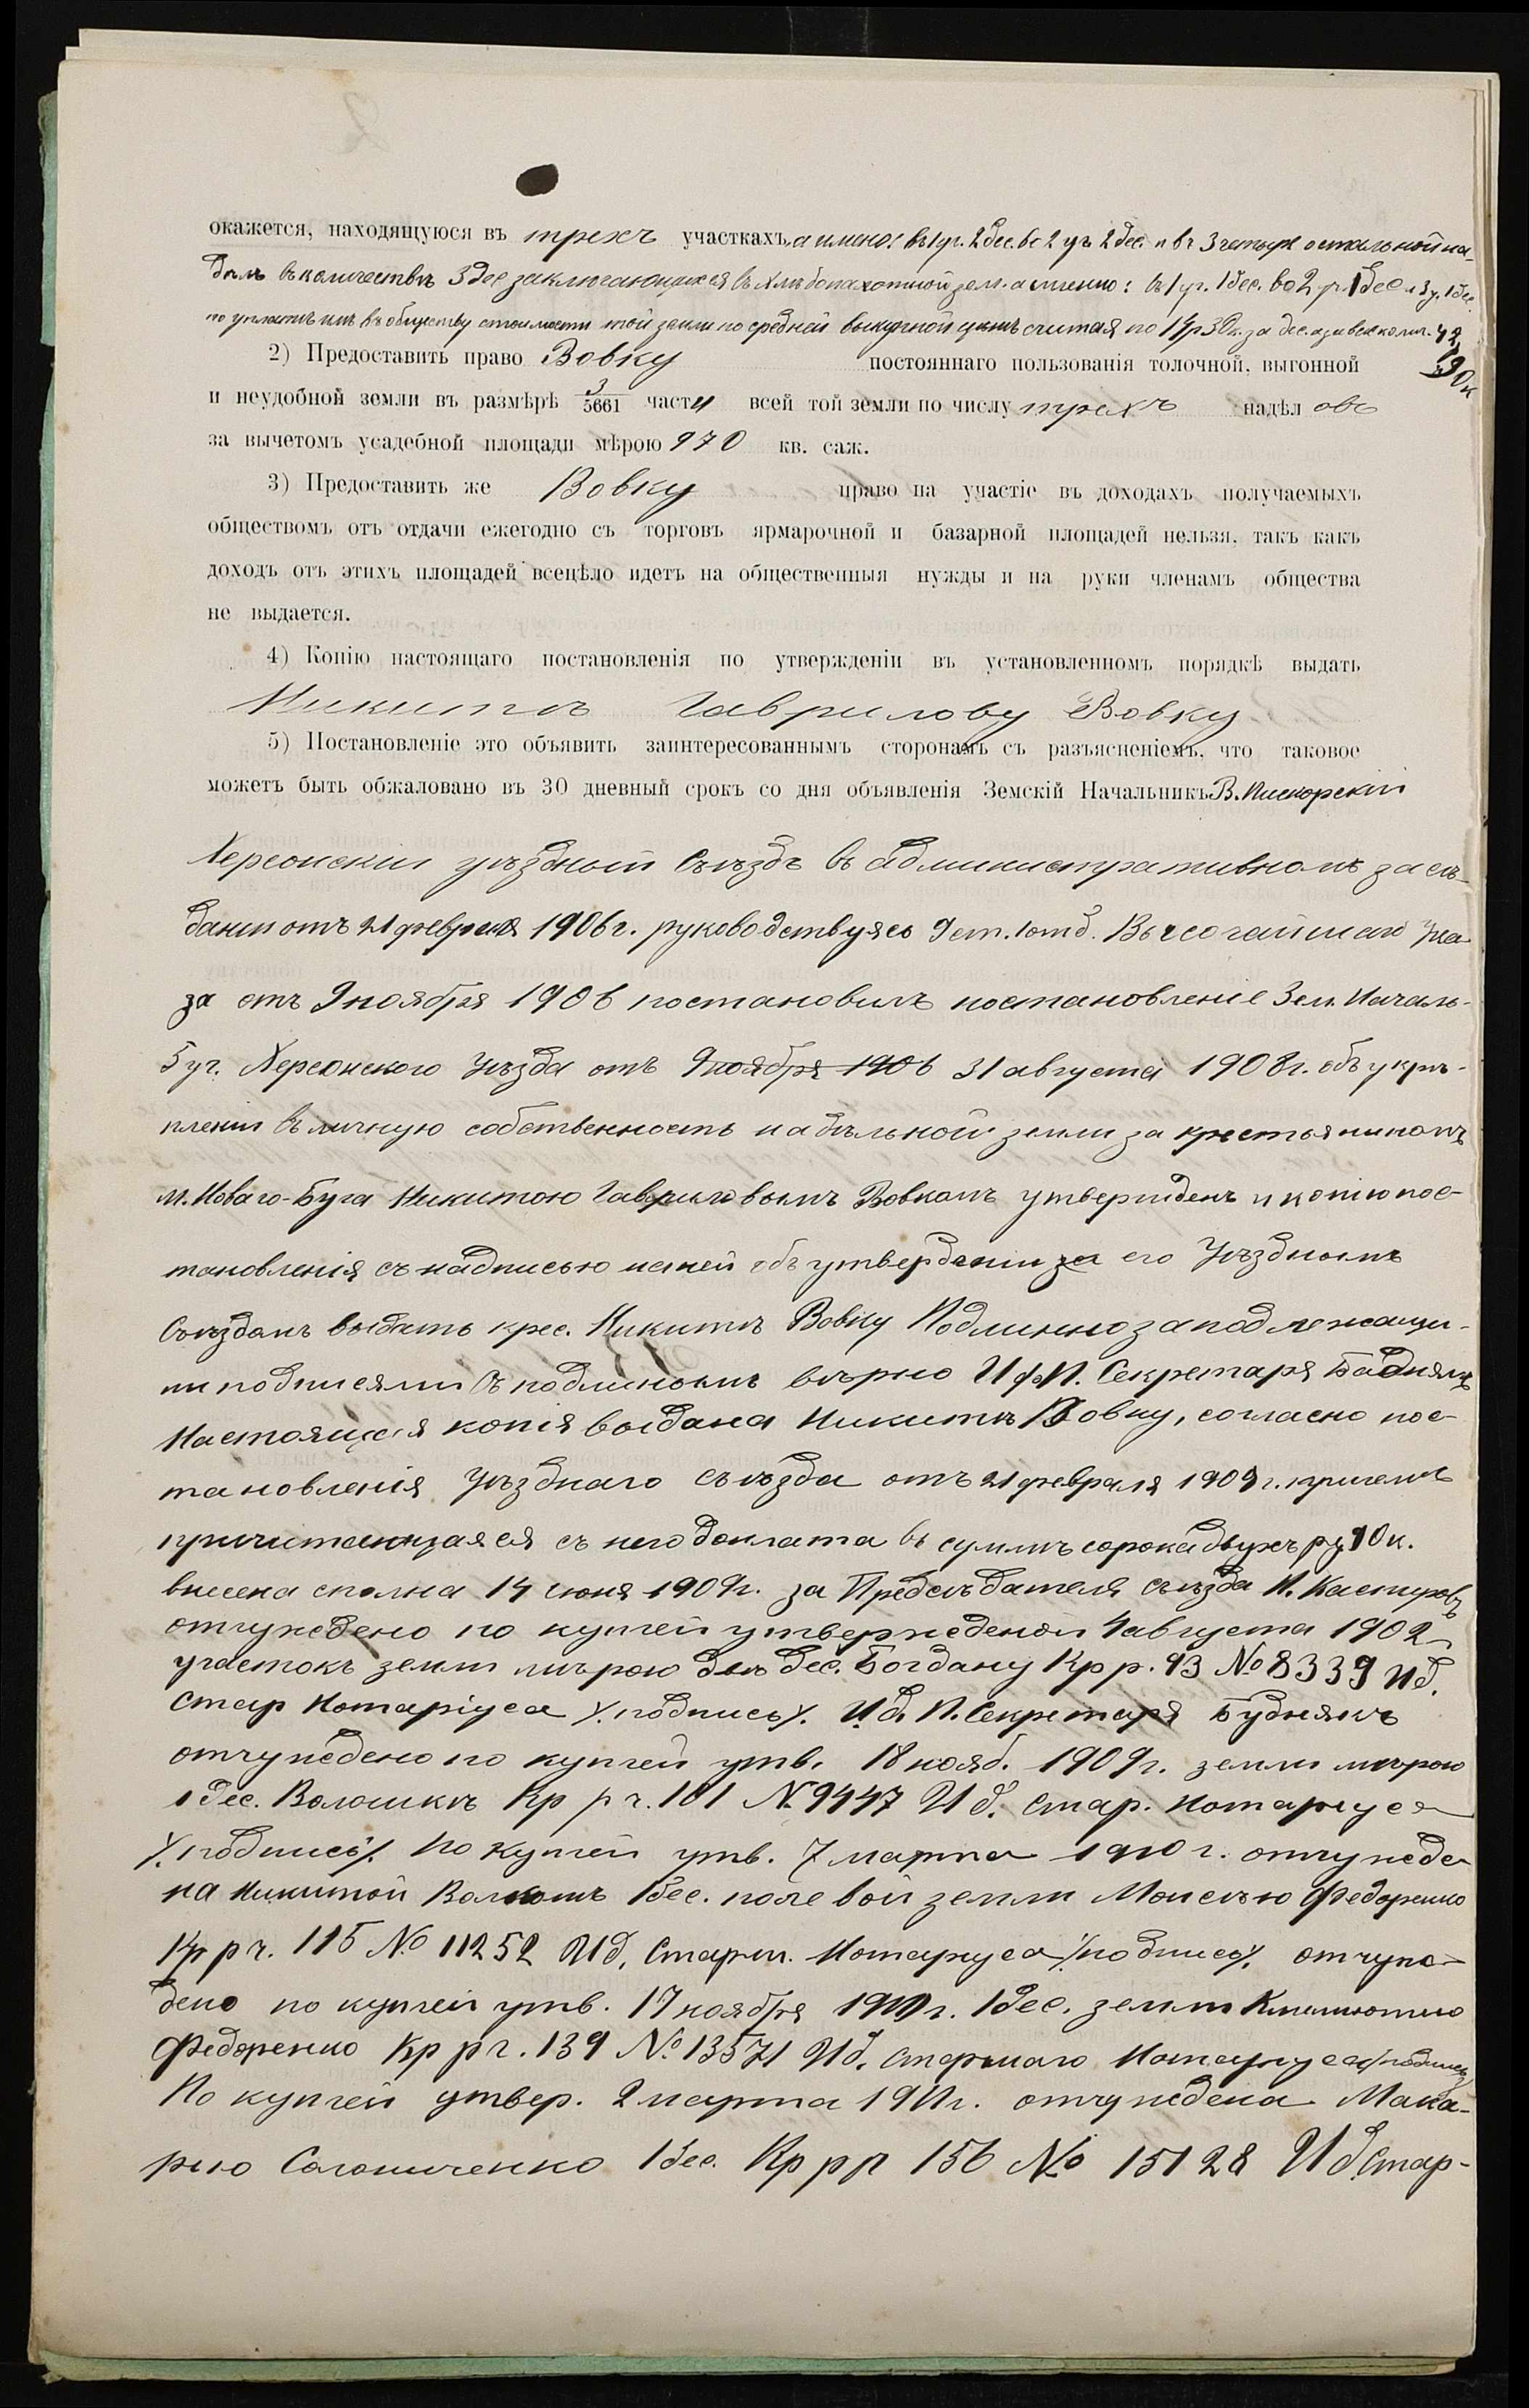 окажется, находящуюся въ трехъ участкахъ, а имено: въ 1 уч. 2 дес. во 2 уч 2 дес. и въ 3 четыре остальной на-
дѣлъ въ количествѣ 3 дес заключающуюся въ хлѣбопахотной зем. а именно: въ 1 уч. 1 дес. во 2 уч. 1 дес и 3 у. 1 дес.
по уплатѣ имъ въ обществу стоимости той земли по средней выкупной цѣнѣ считая по 14 р 30 к. за дес. а за все колич. 42 р
90 к
2) Предоставить право Вовку постояннаго пользованія толочной, выгонной
и неудобной земли въ размѣрѣ 3/5661 части всей той земли по числу трехъ надѣловъ
за вычетомъ усадебной площади мѣрою 970 кв. саж.
3) Предоставить же Вовку право на участіе въ доходахъ получаемыхъ
обществомъ отъ отдачи ежегодно съ торговъ ярмарочной и базарной площадей нельзя, такъ какъ
доходъ отъ этихъ площадей всецѣло идетъ на общественныя нужды и на руки членамъ общества
не выдается.
4) Копію настоящаго постановленія по утвержденіи въ установленномъ порядкѣ выдать
Никитѣ Гаврилову Вовку
5) Постановленіе это объявить заинтересованнымъ сторонамъ съ разъясненіемъ, что таковое
можетъ быть обжаловано въ 30 дневный срокъ со дня объявленія Земскій Начальникъ В. Пискорскій
Херсонскій уѣздный съѣздъ въ административномъ засѣ-
даніи отъ 21 февраля 1906 г. руководствуясь 9 ст. 1 отд. Высочайшаго Ука-
за отъ 9 ноября 1906 постановилъ постановленіе Зем. Началь-
5 уч. Херсонского Уѣзда отъ 9 ноября 1906 31 августа 1908 г. объ укрѣ-
пленіи въ личную собственность надѣльной земли за крестьяниномъ
м. Новаго-Буга Никитою Гавриловымъ Вовкомъ утвержденъ и копію пос-
тановленія съ надписью на ней объ утвердении за его Уѣзднымъ
Съѣздомъ выдать крес. Никитѣ Вовку Подлинно за подлежащи-
ми подписями Съ подлиномъ вѣрно И ф. И. Секретаря Буднякъ
Настоящая копія выдана Никитѣ Вовку, согласно пос-
тановленія Уѣзднаго съѣзда отъ 21 февраля 1909 г. причемъ
причитающаяся съ него доплата въ суммѣ сорока двухъ ру 90 к.
внесена сполна 14 июня 1909 г. за Предсѣдателя съѣзда
отчуждено по купчей утвержденой 4 августа 1909
участокъ земли мѣрою двѣ дес. Богдану Кр р. 93 № 8339 И д.
Стар Нотаріуса /подпись/. И. д. И. Секретаря Буднякъ
отчуждено по купчей утв. 18 нояб. 1909 г. земли мѣрою
1 дес. Волошкѣ Кр р ч. 101 № 9447 И д. Стар. Нотариуса
/подпись/. По купчей утв. 7 марта 1910 г. отчужде-
на Никитой Вовкомъ 1 дес. полевой земли Моисѣю Федоренко
Кр р ч. 115 № 11252 И д. Старш. Нотариуса /подпись/. отчуж-
дено по купчей утв. 17 ноября 1910 г. 1 дес. земли
Федоренко Кр р г. 139 № 13571 И д. старшаго Нотариуса /подпись/
По купчей утвер. 2 марта 1911 г. отчуждена Мака-
рию 1 дес. Кр р р 156 № 15128 И д. Стар-